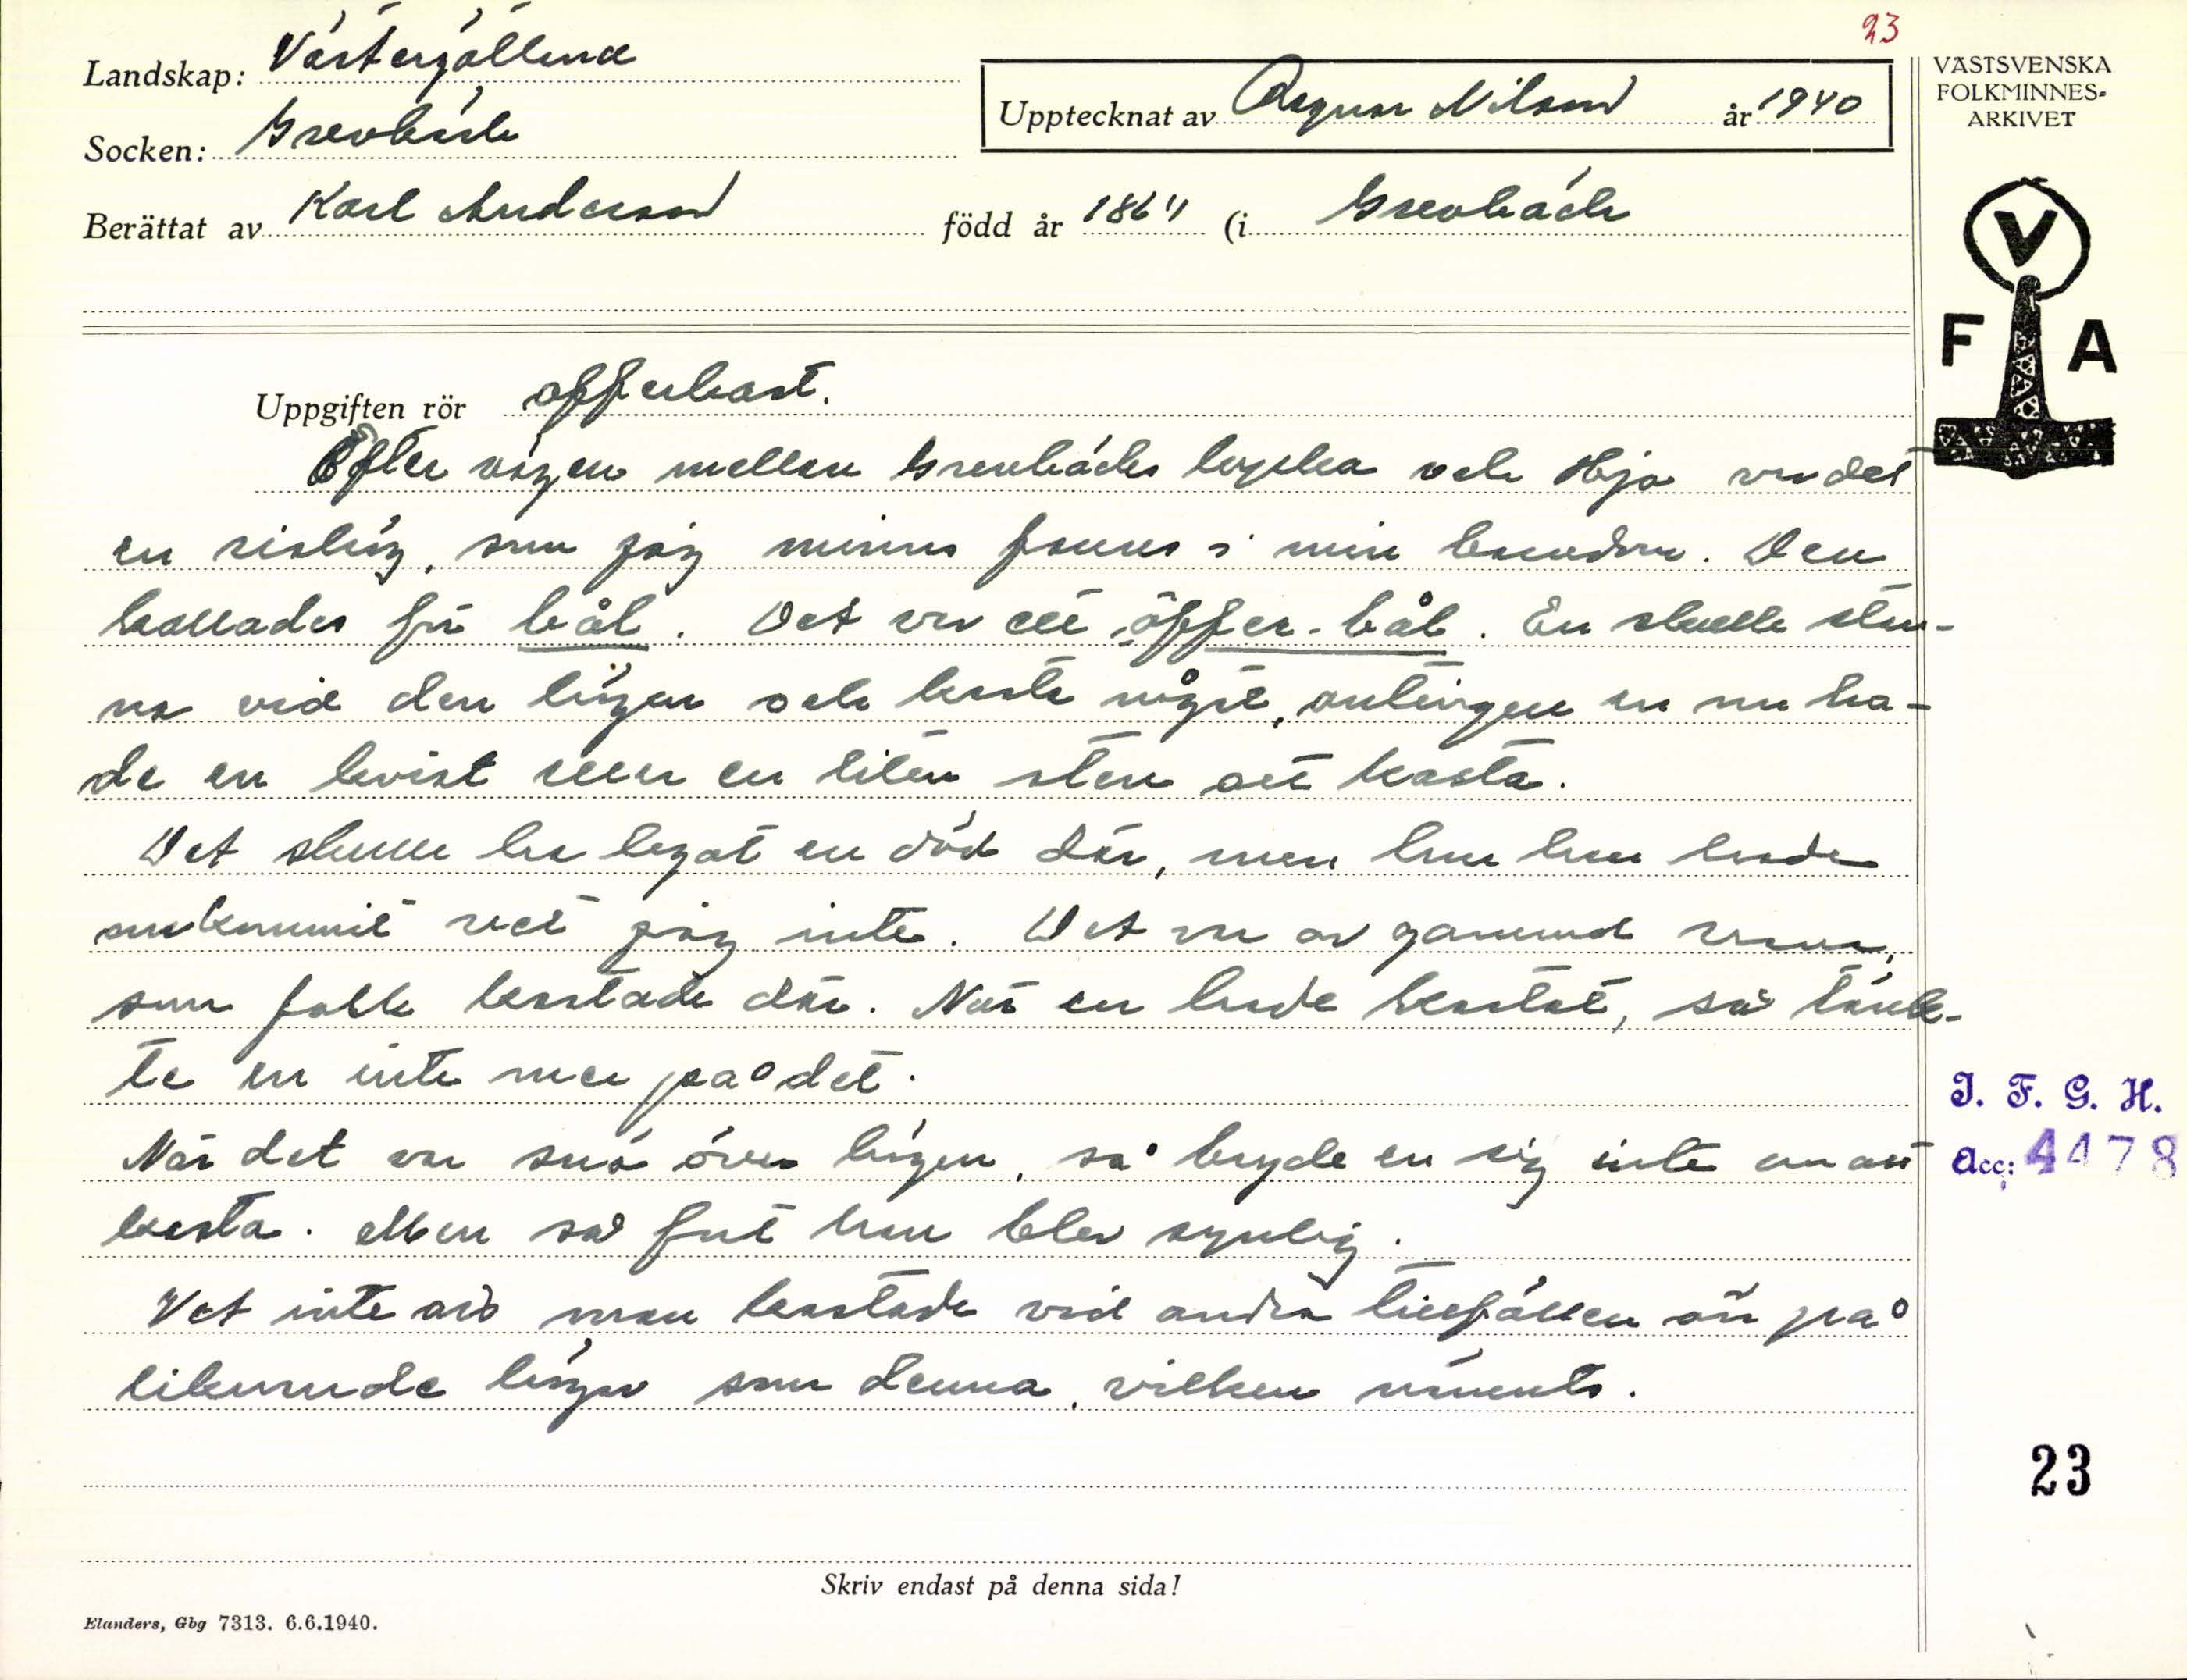 23
Landskap: Västergötland
Socken: Grevbäck
Berättat av Karl Anderson född år 1864 (i Grevbäck
Upptecknat av Ragnar Nilsson år 1940
VÄSTSVENSKA
FOLKMINNES-
ARKIVET
V
F A
Uppgiften rör offerkast.
Efter vägen mellan Grevbäcks kyrka och Hjo var det
en rishög, som jag minns fanns i min barndom. Den
kallades för bål. Det var ett offer-bål. En skulle stan-
na vid den högen och kasta något, antingen en nu ha-
de en kvist eller en liten sten att kasta.
Det skulle ha legat en död där, men hur han hade
omkommit vet jag inte. Det var av gammal vana,
som folk kastade där. När en hade kastat, så tänk-
te en inte mer på det.
När det var snö över högen, så brydde en sig inte om att
kasta. Men så fort han blev synlig.
Vet inte av man kastade vid andra tillfällen än på
liknande högar som denna, vilken nämnts.
I. F. G. H.
Acc: 4478
23
Skriv endast på denna sida!
Elanders, Gbg 7313. 6.6.1940.